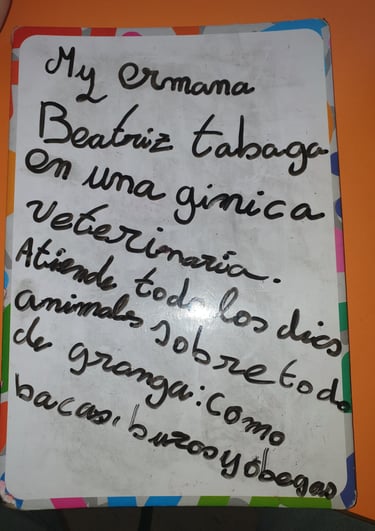 My ermana
Beatriz tabaga
en una ginica
veterinaria.
Atiende todo los dies
animales sobre todo
de granga: como
bacas, buros y obegas